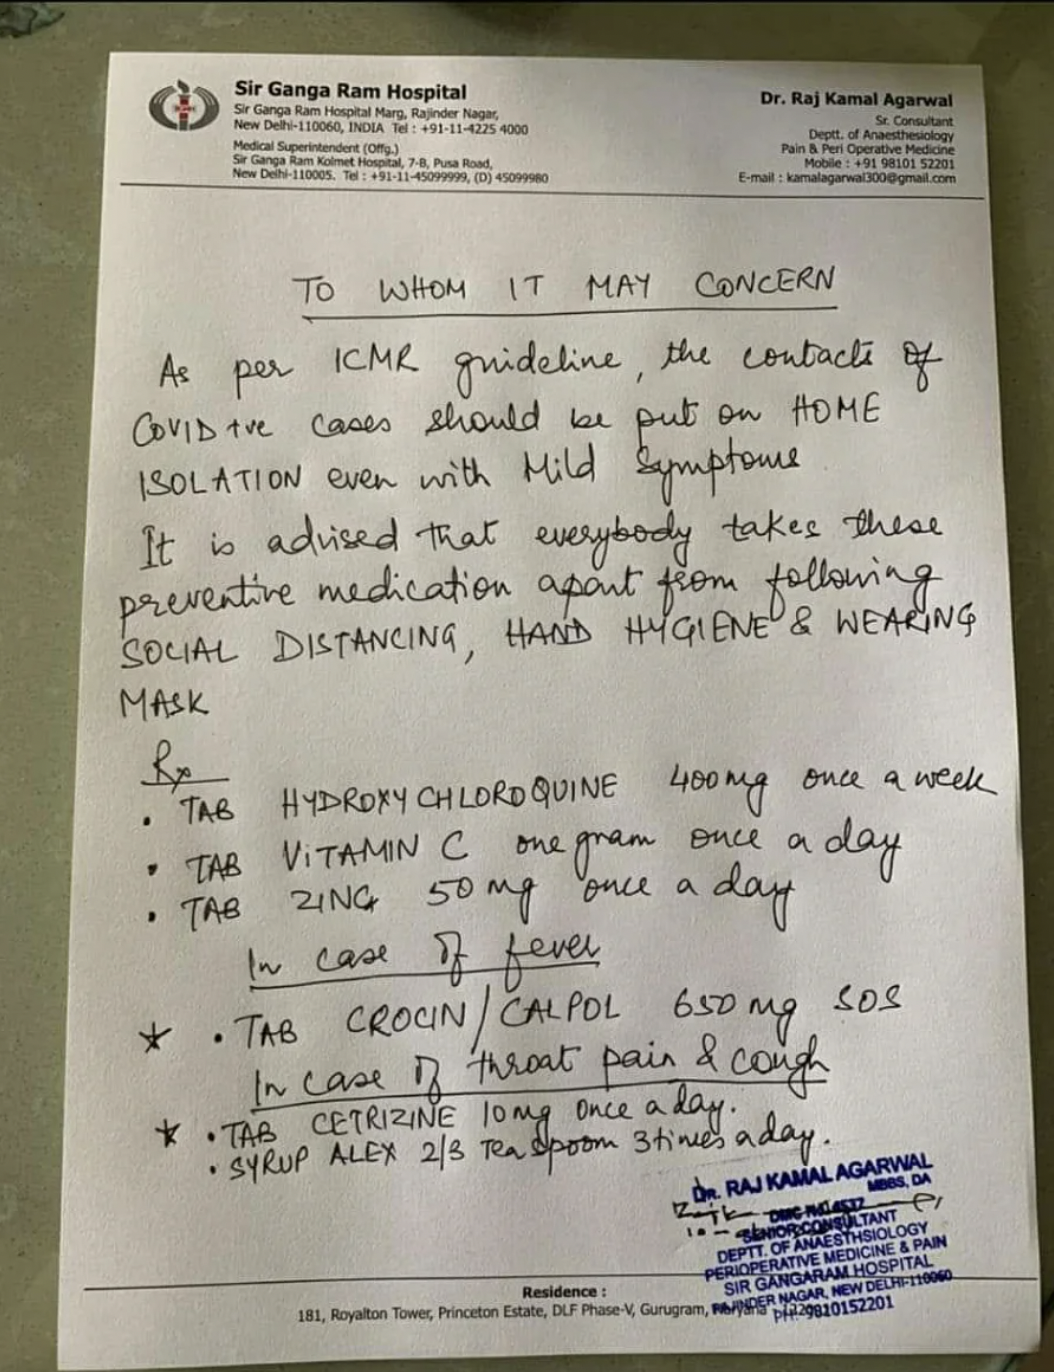 Sir Ganga Ram Hospital
Sir Ganga Ram Hospital Marg, Rajinder Nagar,
New Delhi-110060, INDIA Tel : +91-11-4225 4000
Medical Superintendent (Offg.)
Sir Ganga Ram Kolmet Hospital, 7-B, Pusa Road,
New Delhi-110005. Tel : +91-11-45099999, (D) 45099980
Dr. Raj Kamal Agarwal
Sr. Consultant
Deptt. of Anaesthesiology
Pain & Peri Operative Medicine
Mobile : +91 98101 52201
E-mail : kamalagarwal300@gmail.com
TO WHOM IT MAY CONCERN
As per ICMR guideline, the contacts of
COVID +ve cases should be put on HOME
ISOLATION even with Mild Symptoms
It is advised that everybody takes these
preventive medication apart from following
SOCIAL DISTANCING, HAND HYGIENE & WEARING
MASK
Rx
. TAB HYDROXYCHLOROQUINE 400mg once a week
. TAB VITAMIN C one gram once a day
. TAB ZINC 50 mg once a day
In case of fever
★ . TAB CROCIN/CALPOL 650 mg SOS
In case of throat pain & cough
★ . TAB CETRIZINE 10mg once a day.
. SYRUP ALEX 2/3 Tea Spoom 3 times a day.
DR. RAJ KAMAL AGARWAL
MBBS, DA
SENIOR CONSULTANT
DEPTT. OF ANAESTHSIOLOGY
PERIOPERATIVE MEDICINE & PAIN
SIR GANGARAM HOSPITAL
RAJINDER NAGAR, NEW DELHI-110060
PH: 9810152201
Residence :
181, Royalton Tower, Princeton Estate, DLF Phase-V, Gurugram, Haryana